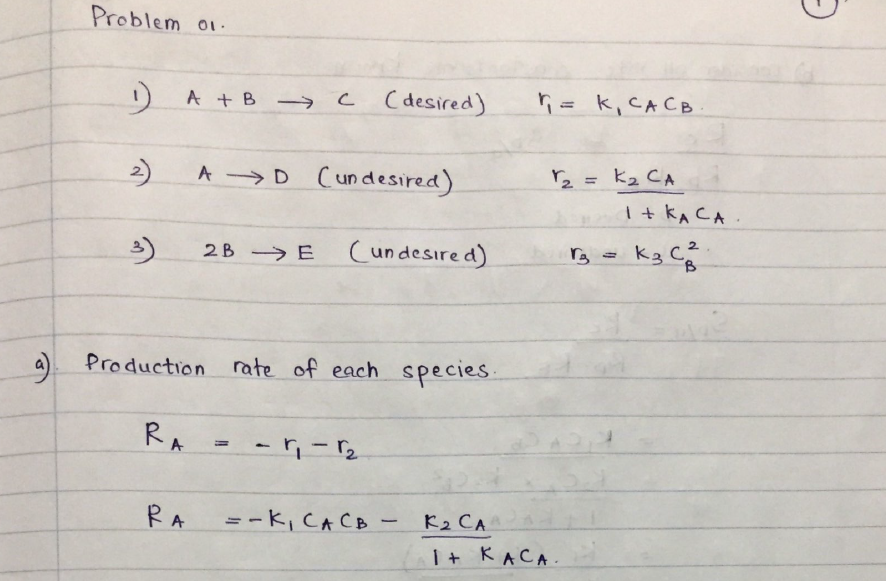 1
Problem 01.
1) A + B → C (desired) r₁ = k₁ CA CB.
2) A → D (undesired) r₂ = k₂ CA / 1 + kA CA.
3) 2B → E (undesired) r₃ = k₃ CB²
a) Production rate of each species.
RA = - r₁ - r₂
RA = - k₁ CA CB - k₂ CA / 1 + KA CA.